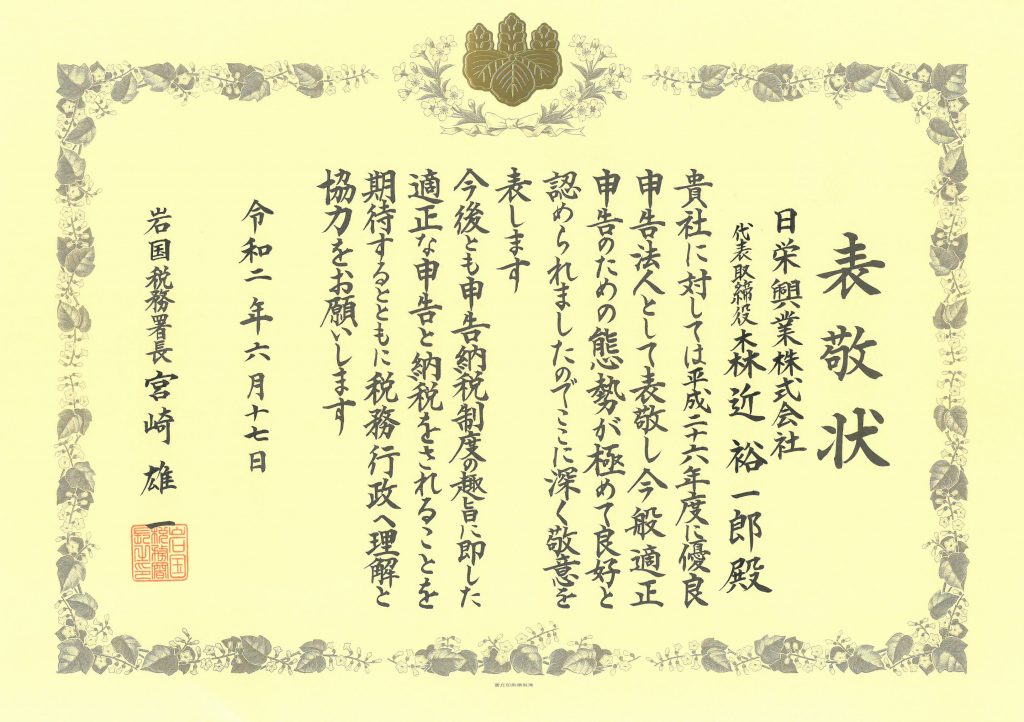 表敬状
日栄興業株式会社
代表取締役 森近裕一郎殿
貴社に対しては平成二十六年度に優良
申告法人として表敬し今般適正
申告のための態勢が極めて良好と
認められましたのでここに深く敬意を
表します
今後とも申告納税制度の趣旨に即した
適正な申告と納税をされることを
期待するとともに税務行政へ理解と
協力をお願いします
令和二年六月十七日
岩国税務署長 宮崎雄一
岩国
税務署
長之印